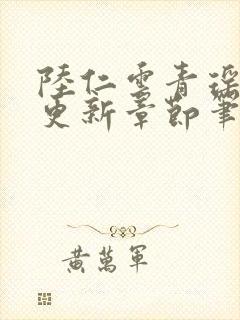 陸仁雲青瑶
更新章節筆
黃萬軍